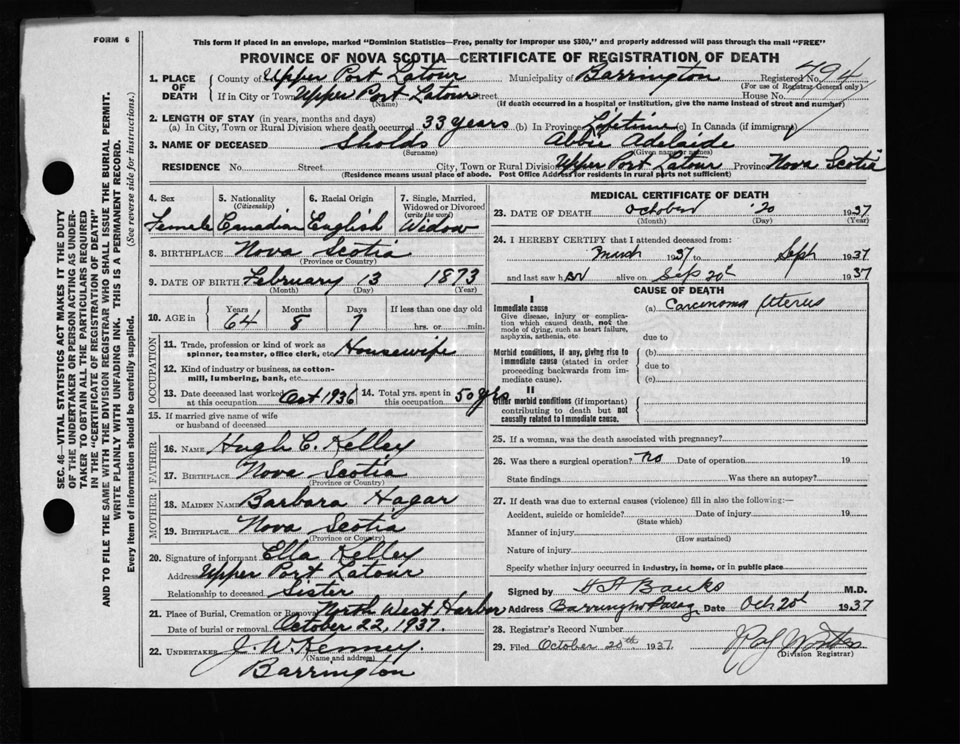 FORM 6
This form if placed in an envelope, marked "Dominion Statistics—Free, penalty for improper use $300," and properly addressed will pass through the mail "FREE"
PROVINCE OF NOVA SCOTIA—CERTIFICATE OF REGISTRATION OF DEATH
1. PLACE OF DEATH County of Upper Port Latour Municipality of Barrington Registered No. 494
(For use of Registrar-General only)
If in City or Town Upper Port Latour Street House No.
(Name) (If death occurred in a hospital or institution, give the name instead of street and number)
2. LENGTH OF STAY (in years, months and days)
(a) In City, Town or Rural Division where death occurred 33 years (b) In Province Lifetime (c) In Canada (if immigrant)
3. NAME OF DECEASED Sholds Abbie Adelaide
(Surname) (Given name or names)
RESIDENCE No. Street City, Town or Rural Division Upper Port Latour Province Nova Scotia
(Residence means usual place of abode. Post Office Address for residents in rural parts not sufficient)
4. Sex 5. Nationality 6. Racial Origin 7. Single, Married, Widowed or Divorced
(Citizenship) (write the word)
Female Canadian English Widow
8. BIRTHPLACE Nova Scotia
(Province or Country)
9. DATE OF BIRTH February 13 1873
(Month) (Day) (Year)
10. AGE in Years Months Days If less than one day old
64 8 7 hrs. or min.
OCCUPATION
11. Trade, profession or kind of work as spinner, teamster, office clerk, etc. Housewife
12. Kind of industry or business, as cotton-mill, lumbering, bank, etc.
13. Date deceased last worked at this occupation Oct 1936 14. Total yrs. spent in this occupation 50 yrs
15. If married give name of wife or husband of deceased
FATHER
16. NAME Hugh C. Kelley
17. BIRTHPLACE Nova Scotia
(Province or Country)
MOTHER
18. MAIDEN NAME Barbara Hagar
19. BIRTHPLACE Nova Scotia
(Province or Country)
20. Signature of informant Ella Kelley
Address Upper Port Latour
Relationship to deceased Sister
21. Place of Burial, Cremation or Removal North West Harbor
Date of burial or removal October 22, 1937.
22. UNDERTAKER J. W. Kenney.
(Name and address)
Barrington
MEDICAL CERTIFICATE OF DEATH
23. DATE OF DEATH October 20 1937
(Month) (Day) (Year)
24. I HEREBY CERTIFY that I attended deceased from:
March 1937 to Sept 1937
and last saw her alive on Sep 20th 1937
CAUSE OF DEATH
I
Immediate cause (a) Carcinoma Uterus
Give disease, injury or complication which caused death, not the mode of dying, such as heart failure, asphyxia, asthenia, etc.
due to
Morbid conditions, if any, giving rise to immediate cause (stated in order proceeding backwards from immediate cause). (b)
due to
(c)
II
Other morbid conditions (if important) contributing to death but not causally related to immediate cause.
25. If a woman, was the death associated with pregnancy?
26. Was there a surgical operation? no Date of operation 19
State findings Was there an autopsy?
27. If death was due to external causes (violence) fill in also the following:—
Accident, suicide or homicide? Date of injury 19
(State which)
Manner of injury
(How sustained)
Nature of injury
Specify whether injury occurred in industry, in home, or in public place
Signed by H A Banks M.D.
Address Barrington Passage Date Oct 20th 1937
28. Registrar's Record Number
29. Filed October 20th 1937
(Division Registrar)
SEC. 46—VITAL STATISTICS ACT MAKES IT THE DUTY OF THE UNDERTAKER OR PERSON ACTING AS UNDERTAKER TO OBTAIN ALL THE PARTICULARS REQUIRED IN THE "CERTIFICATE OF REGISTRATION OF DEATH" AND TO FILE THE SAME WITH THE DIVISION REGISTRAR WHO SHALL ISSUE THE BURIAL PERMIT.
WRITE PLAINLY WITH UNFADING INK. THIS IS A PERMANENT RECORD.
Every item of information should be carefully supplied. (See reverse side for instructions.)